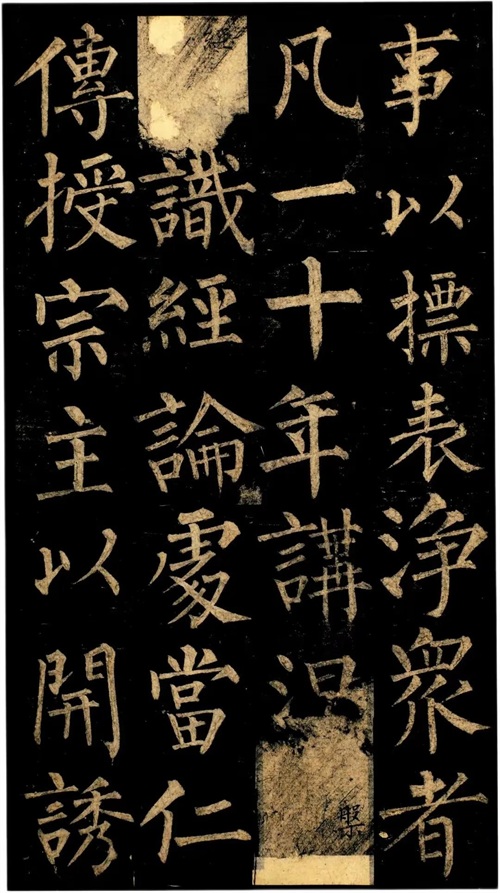 事以標表淨衆者
凡一十年講涅槃
識經論處當仁
傳授宗主以開誘